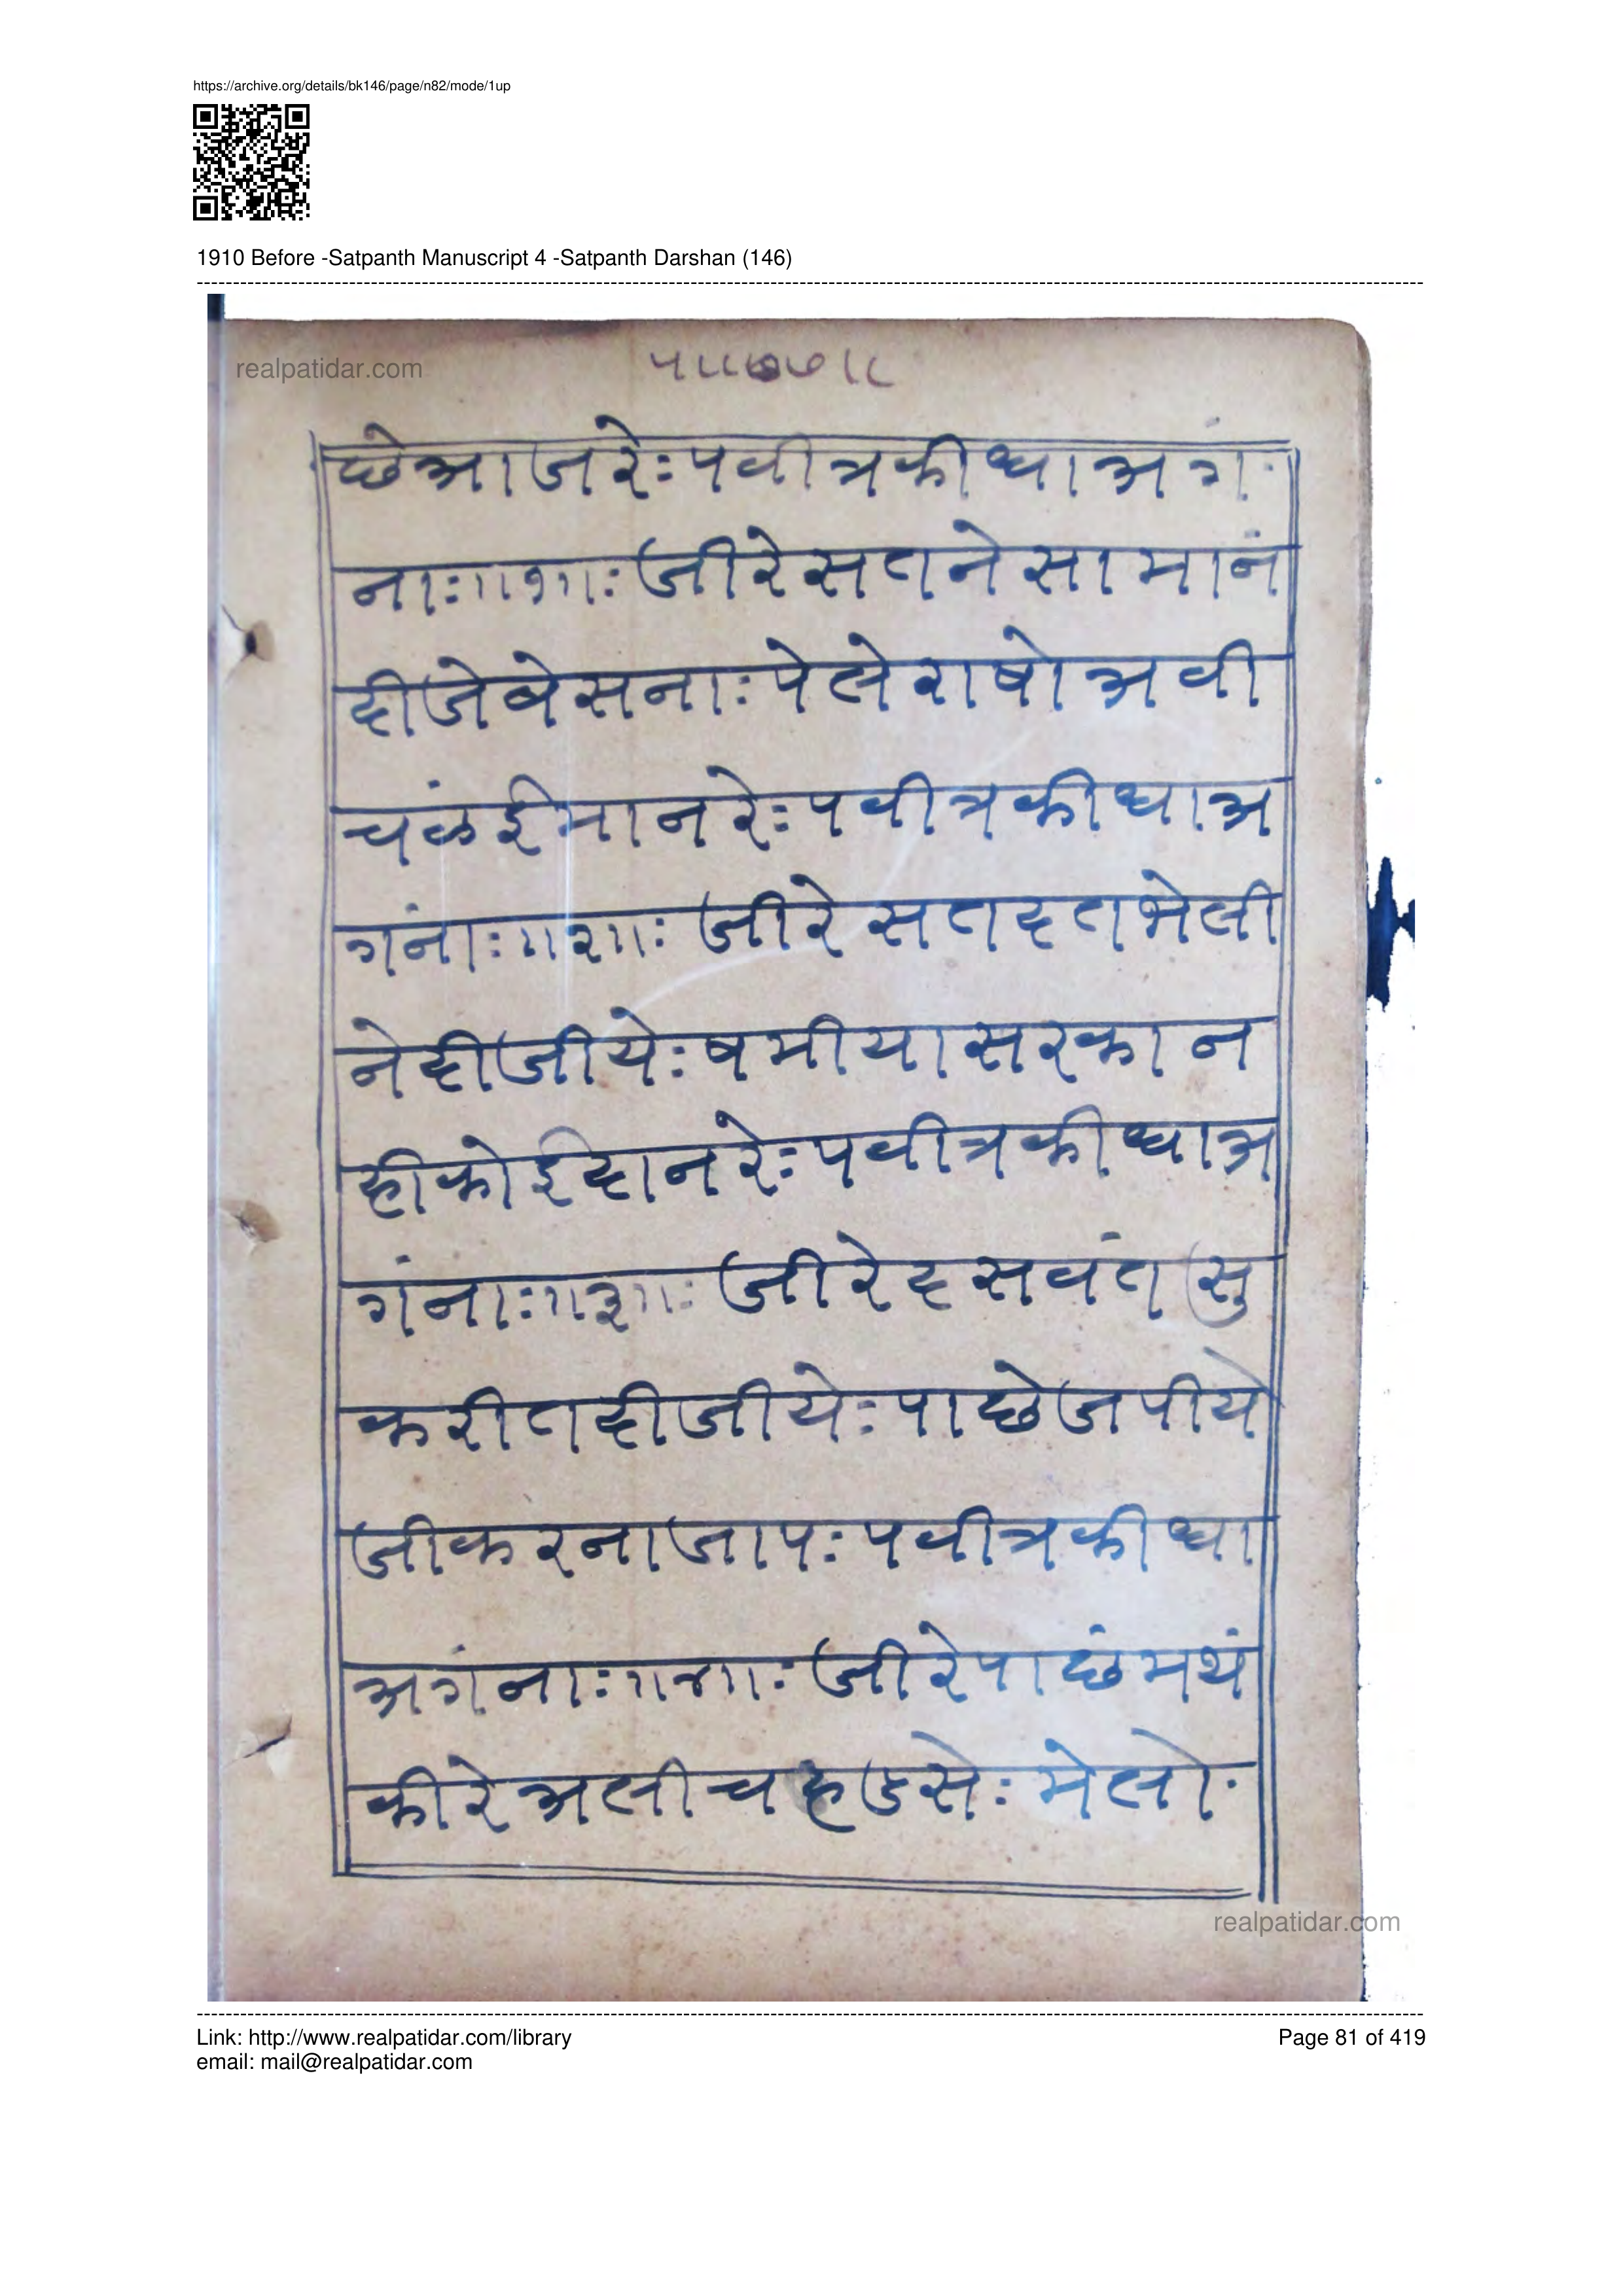 https://archive.org/details/bk146/page/n82/mode/1up
1910 Before -Satpanth Manuscript 4 -Satpanth Darshan (146)
realpatidar.com
छेआजरे:पवीत्रकीधाअगं
ना:॥१॥:जीरेसतनेसामानं
दीजेबेसना:पेलेराषोअवी
चंळईमानरे:पवीत्रकीधाअ
गंना:॥२॥:जीरेसतदतभेली
नेदीजीये:षमीयासरकान
हीकोईदानरे:पवीत्रकीधाअ
गंना:॥३॥:जीरेदसवंतसु
करीतदीजीये:पाछेजपीये
जीकरनाजाप:पवीत्रकीधा
अगंना:॥४॥:जीरेपाछंमथं
कीरेअलीचहडसे:मेलो
realpatidar.com
Link: http://www.realpatidar.com/library
Page 81 of 419
email: mail@realpatidar.com